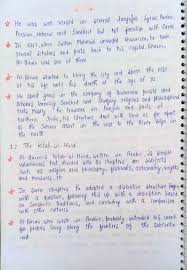 He was well versed in several languages Syriac, Arabic
Persian, Hebrew and Sanskrit but not familiar with Greek
In 1017, when Sultan Mahmud invaded Khwarizm he took
several scholars and poets back to his capital Ghazni.
Al-Biruni was one of them
Al-Biruni started to liking the city and spent the rest
of his life until his death at the age of 70
He spent years in the company of Brahmana priests and
Scholars learning Sanskrit and studying religious and philosophical
texts mostly he travelled in Punjab and parts of
northern India,
1.2 The Kitab-ul-Hind
Al-Biruni's Kitab-ul-Hind, written in Arabic is simple
voluminous text divided into 80 chapters on subjects
such as religion and philosophy, festivals, etc
In some chapters he adopted a distinctive structure begin
with a question, following this up with a description based
on Sanskritic traditions, and concluding with a comparison
with other cultures.
Al-Biruni who wrote in Arabic, probably intended his work
for peoples living along the frontiers of the subcontin
ent